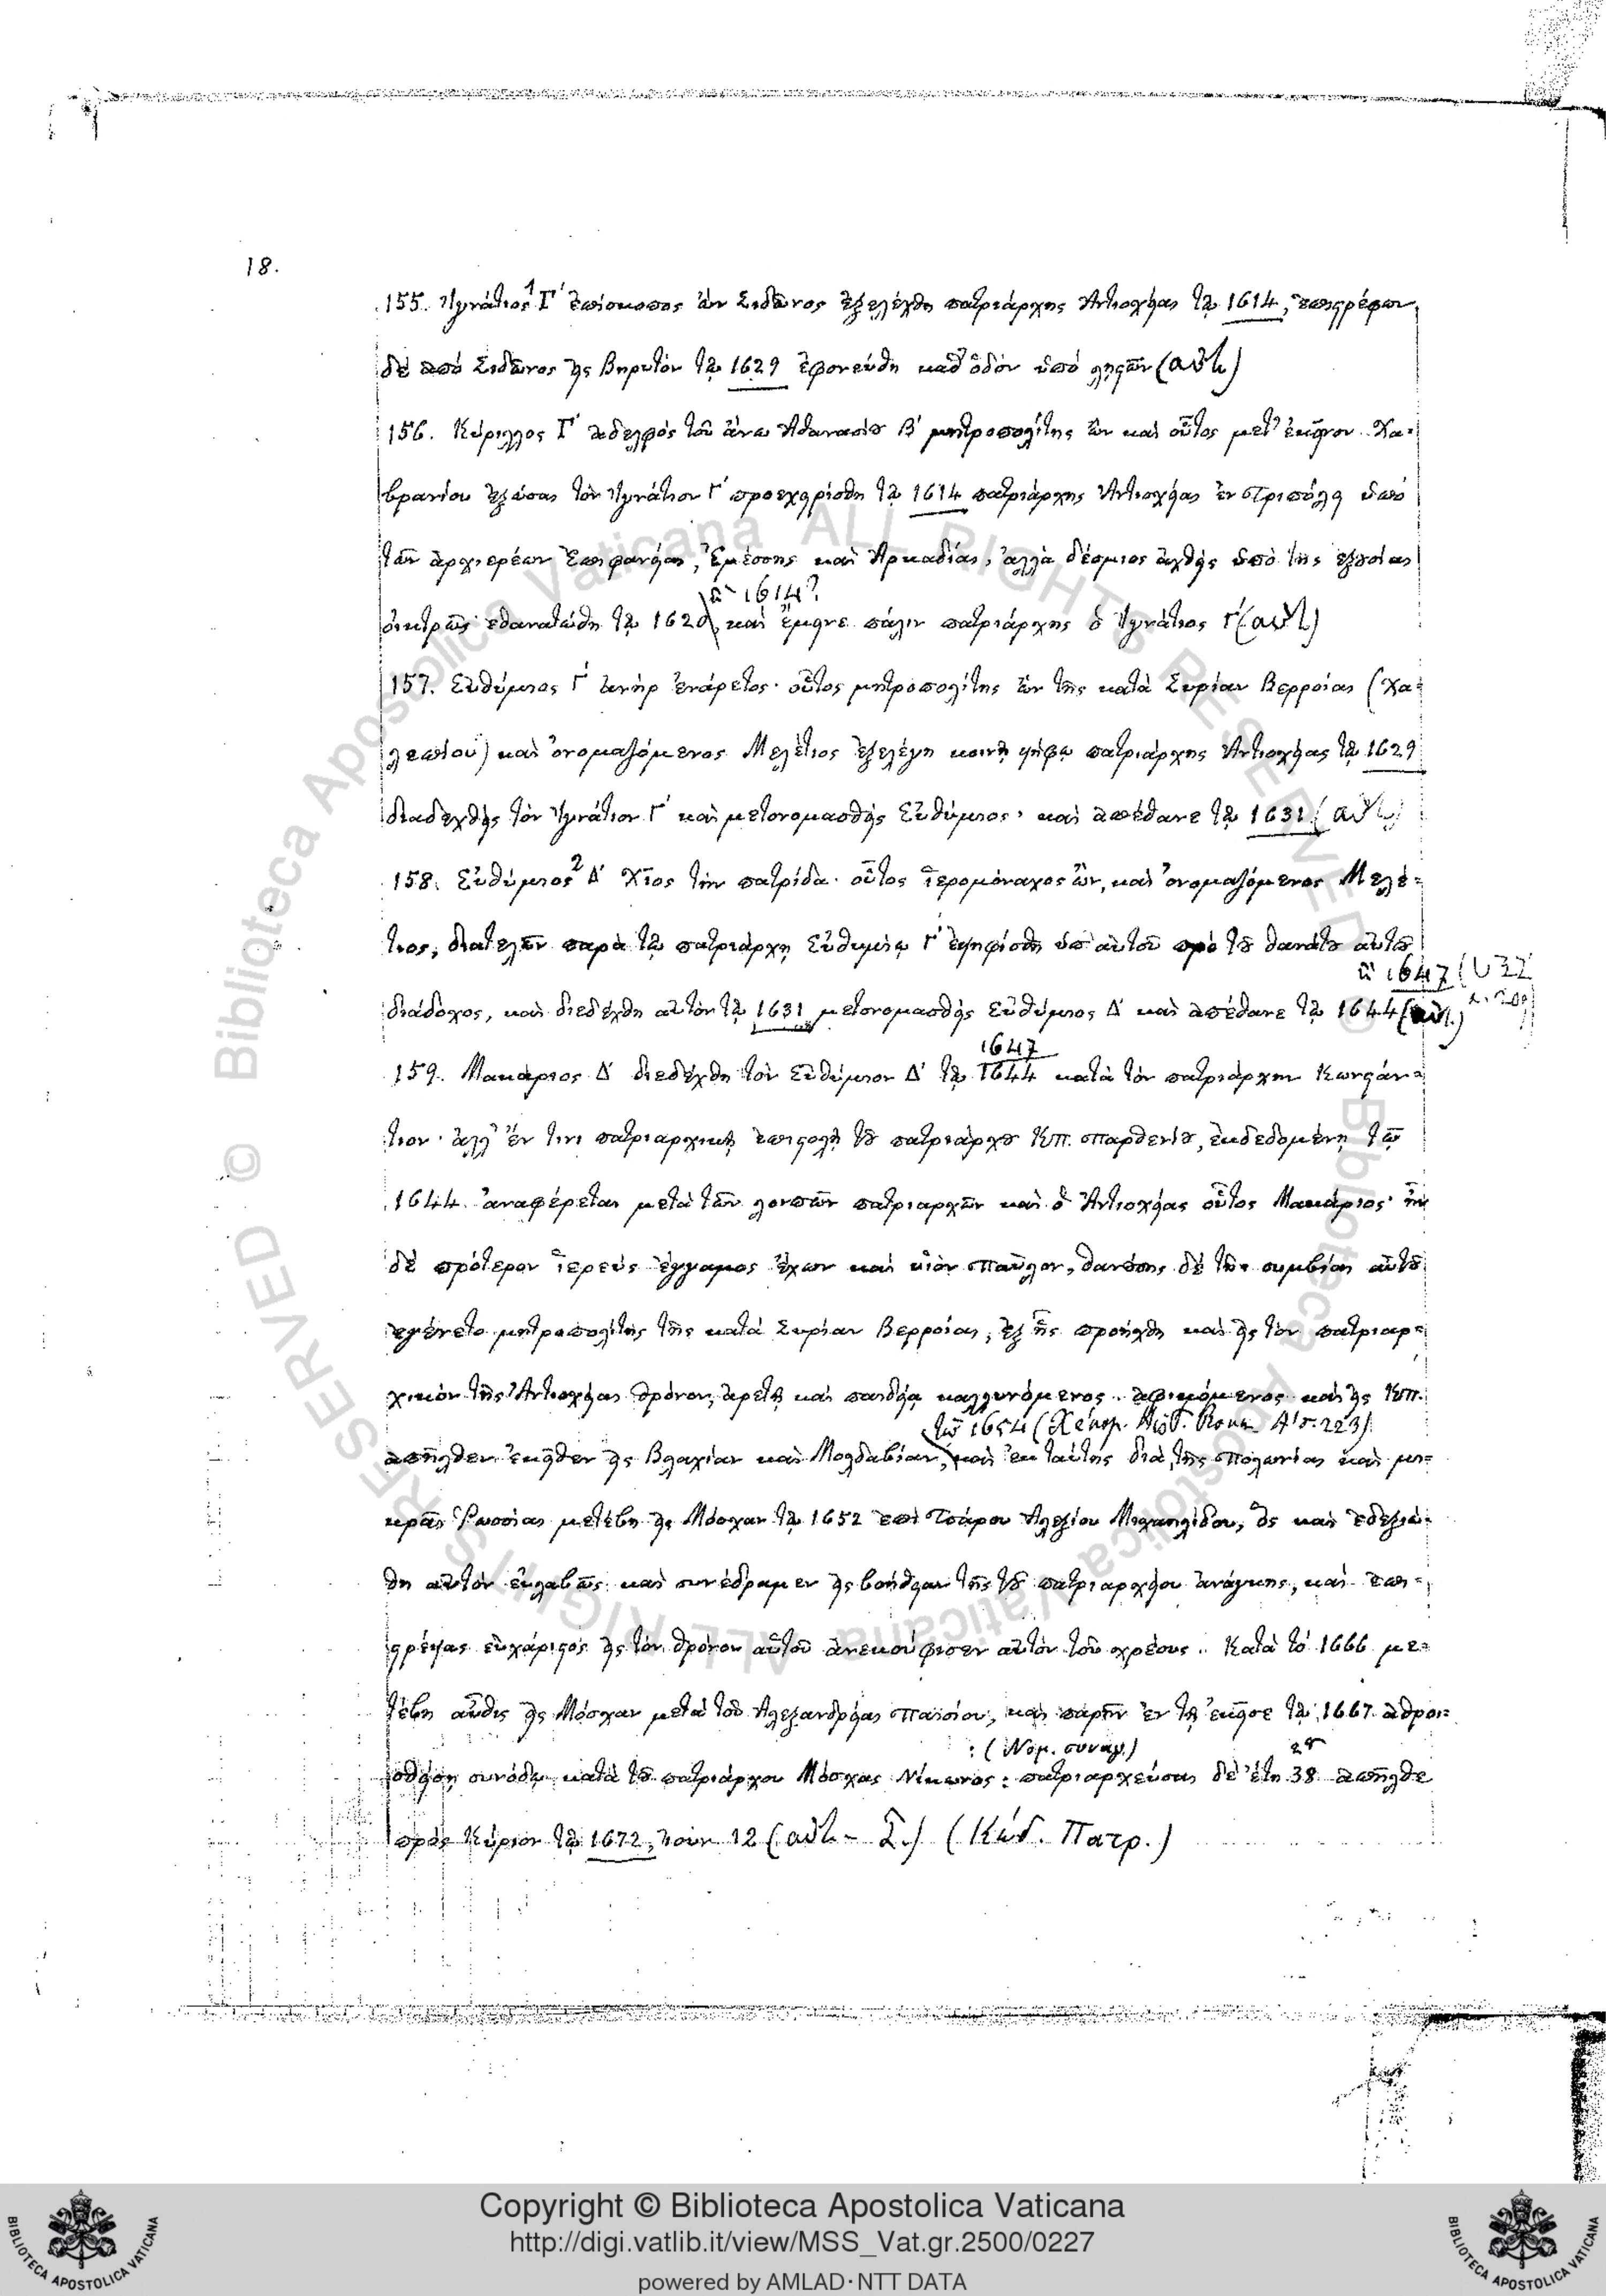 18.
155. Ἰγνάτιος¹ Γʹ ἐπίσκοπος ὢν Σιδῶνος ἐξελέχθη πατριάρχης Ἀντιοχείας τῷ 1614, ἐπιστρέφων
δὲ ἀπὸ Σιδῶνος εἰς Βηρυτὸν τῷ 1629 ἐφονεύθη καθ' ὁδὸν ὑπὸ λῃστῶν (αὐτ.)
156. Κύριλλος Γʹ ἀδελφὸς τοῦ ἄνω Ἀθανασίου Βʹ μητροπολίτης ὢν καὶ οὗτος μετ' ἐκεῖνον Χα-
βρανίου ἐξώσας τὸν Ἰγνάτιον Γʹ προεχειρίσθη τῷ 1614 πατριάρχης Ἀντιοχείας ἐν Τριπόλει ὑπὸ
τῶν ἀρχιερέων Ἐπιφανείας, Ἐμέσσης καὶ Ἀρκαδίας, ἀλλὰ δέσμιος ἀχθεὶς ὑπὸ τῆς ἐξουσίας
ἢ 1614?
οἰκτρῶς ἐθανατώθη τῷ 1620, καὶ ἔμεινε πάλιν πατριάρχης ὁ Ἰγνάτιος Γʹ (αὐτ.)
157. Εὐθύμιος Γʹ ἀνὴρ ἐνάρετος· οὗτος μητροπολίτης ὢν τῆς κατὰ Συρίαν Βερροίας (Χα-
λεπίου) καὶ ὀνομαζόμενος Μελέτιος ἐξελέγη κοινῇ ψήφῳ πατριάρχης Ἀντιοχείας τῷ 1629
διαδεχθεὶς τὸν Ἰγνάτιον Γʹ καὶ μετονομασθεὶς Εὐθύμιος· καὶ ἀπέθανε τῷ 1631 (αὐτ.)
158. Εὐθύμιος² Δʹ Χῖος τὴν πατρίδα· οὗτος ἱερομόναχος ὤν, καὶ ὀνομαζόμενος Μελέ-
τιος, διατελῶν παρὰ τῷ πατριάρχῃ Εὐθυμίῳ Γʹ ἐψηφίσθη ὑπ' αὐτοῦ πρὸ τοῦ θανάτου αὐτοῦ
ἢ 1647
διάδοχος, καὶ διεδέχθη αὐτὸν τῷ 1631 μετονομασθεὶς Εὐθύμιος Δʹ καὶ ἀπέθανε τῷ 1644 (αὐτ.)
1647
159. Μακάριος Δʹ διεδέχθη τὸν Εὐθύμιον Δʹ τῷ 1644 κατὰ τὸν πατριάρχην Κωνστάν-
τιον· ἀλλ' ἔν τινι πατριαρχικῇ ἐπιστολῇ τοῦ πατριάρχου Κπ. Παρθενίου, ἐκδεδομένῃ τῷ
1644 ἀναφέρεται μετὰ τῶν λοιπῶν πατριαρχῶν καὶ ὁ Ἀντιοχείας οὗτος Μακάριος· ἦν
δὲ πρότερον ἱερεὺς ἔγγαμος ἔχων καὶ υἱὸν Παῦλον, θανούσης δὲ τῆς συμβίας αὐτοῦ
ἐγένετο μητροπολίτης τῆς κατὰ Συρίαν Βερροίας, ἐξ ἧς προήχθη καὶ εἰς τὸν πατριαρ-
χικὸν τῆς Ἀντιοχείας θρόνον, ἀρετῇ καὶ παιδείᾳ καλλυνόμενος. ἀφικόμενος καὶ εἰς Κπ.
τῷ 1654
ἀπῆλθεν ἐκεῖθεν εἰς Βλαχίαν καὶ Μολδαβίαν, καὶ ἐκ ταύτης διὰ τῆς Πολωνίας καὶ μι-
κρᾶς Ῥωσσίας μετέβη εἰς Μόσχαν τῷ 1652 ἐπὶ Τσάρου Ἀλεξίου Μιχαηλίδου, ὃς καὶ ἐδεξιώ-
θη αὐτὸν εὐλαβῶς καὶ συνέδραμεν εἰς βοήθειαν τῆς τοῦ πατριαρχείου ἀνάγκης, καὶ ἐπι-
στρέψας εὐχάριστος εἰς τὸν θρόνον αὐτοῦ ἀνεκούφισεν αὐτὸν τοῦ χρέους. Κατὰ τὸ 1666 με-
τέβη αὖθις εἰς Μόσχαν μετὰ τοῦ Ἀλεξανδρείας Παϊσίου, καὶ παρῆν ἐν τῇ ἐκεῖσε τῷ 1667 ἀθροι-
: (Νομ. συναγ.)
σθείσῃ συνόδῳ κατὰ τοῦ πατριάρχου Μόσχας Νίκωνος: πατριαρχεύσας δὲ ἔτη 38 ἀπῆλθε
πρὸς Κύριον τῷ 1672, Ἰουν 12 (αὐτ. - Σ.) (Κώδ. Πατρ.)
Copyright © Biblioteca Apostolica Vaticana
http://digi.vatlib.it/view/MSS_Vat.gr.2500/0227
powered by AMLAD·NTT DATA